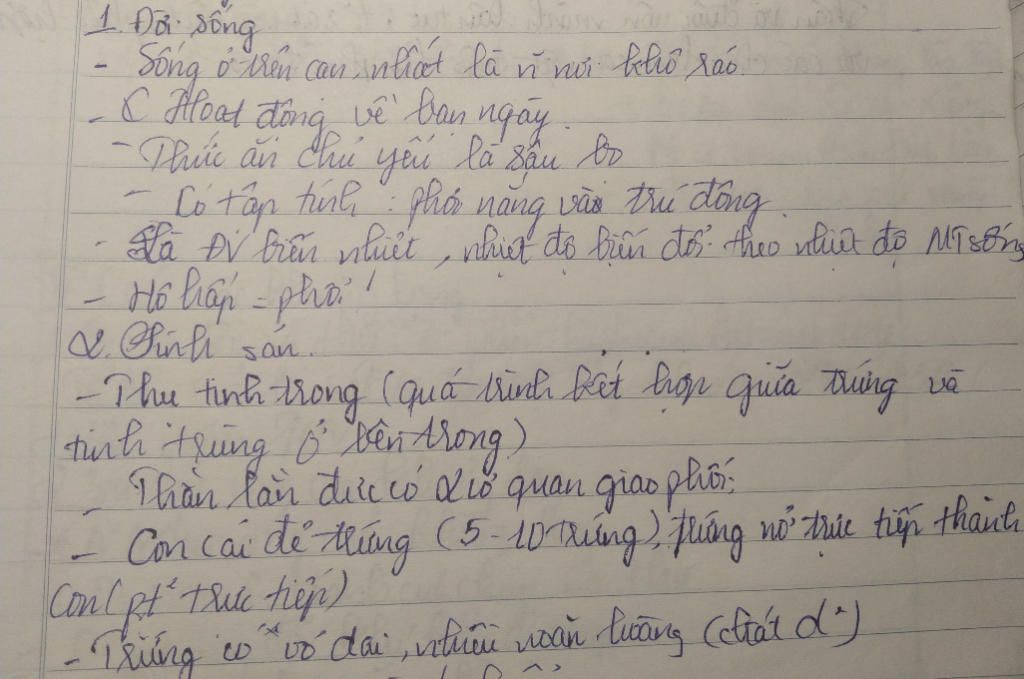 1. Đời sống
- Sống ở trên cạn, nhất là ở nơi khô ráo.
- Hoạt động về ban ngày.
- Thức ăn chủ yếu là sâu bọ
- Có tập tính: phơi nắng và trú đông.
- Là ĐV biến nhiệt, nhiệt độ biến đổi theo nhiệt độ MT sống
- Hô hấp = phổi
2. Sinh sản.
- Thụ tinh trong (quá trình kết hợp giữa trứng và
tinh trùng ở bên trong)
- Thằn lằn đực có 2 cơ quan giao phối.
- Con cái đẻ trứng (5-10 trứng), trứng nở trực tiếp thành
con (pt² trực tiếp)
- Trứng có vỏ dai, nhiều noãn hoàng (chất d²)